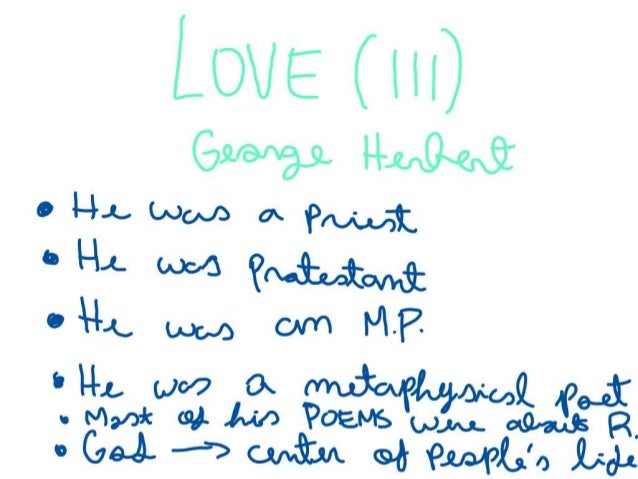 LOVE (III)
George Herbert
• He was a Priest
• He was Protestant
• He was an M.P.
• He was a metaphysical Poet
• Most of his POEMS were about R.
• God → center of People's life